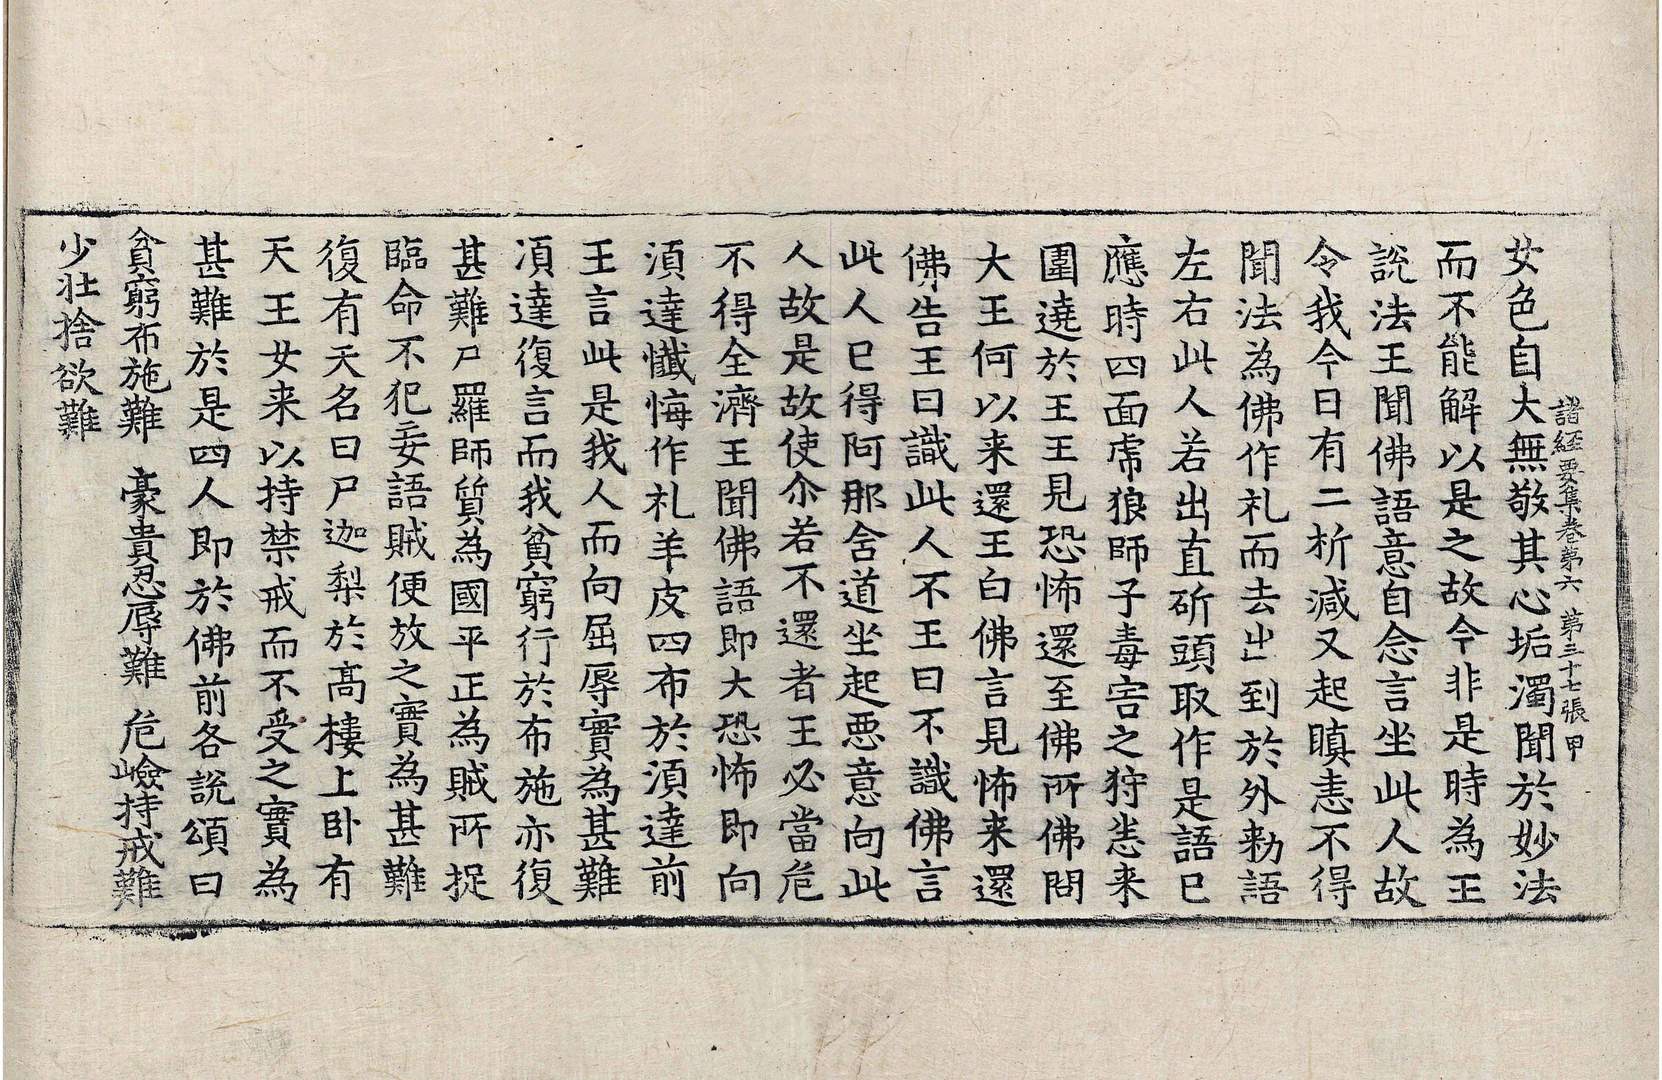 諸經要集卷第六 第三十七張 甲
女色自大無敬其心垢濁聞於妙法
而不能解以是之故今非是時為王
說法王聞佛語意自念言坐此人故
令我今日有二析減又起瞋恚不得
聞法為佛作礼而去出到於外勑語
左右此人若出直斫頭取作是語已
應時四面虎狼師子毒害之狩恙来
圍遶於王王見恐怖還至佛所佛問
大王何以来還王白佛言見怖来還
佛告王曰識此人不王曰不識佛言
此人已得阿那含道坐起悪意向此
人故是故使尒若不還者王必當危
不得全濟王聞佛語即大恐怖即向
湏達懺悔作礼羊皮四布於湏達前
王言此是我人而向屈辱實為甚難
湏達復言而我貧窮行於布施亦復
甚難尸羅師質為國平正為賊所捉
臨命不犯妄語賊便放之實為甚難
復有天名曰尸迦梨於髙樓上卧有
天王女来以持禁戒而不受之實為
甚難於是四人即於佛前各說頌曰
貧窮布施難 豪貴忍辱難 危嶮持戒難
少壯捨欲難